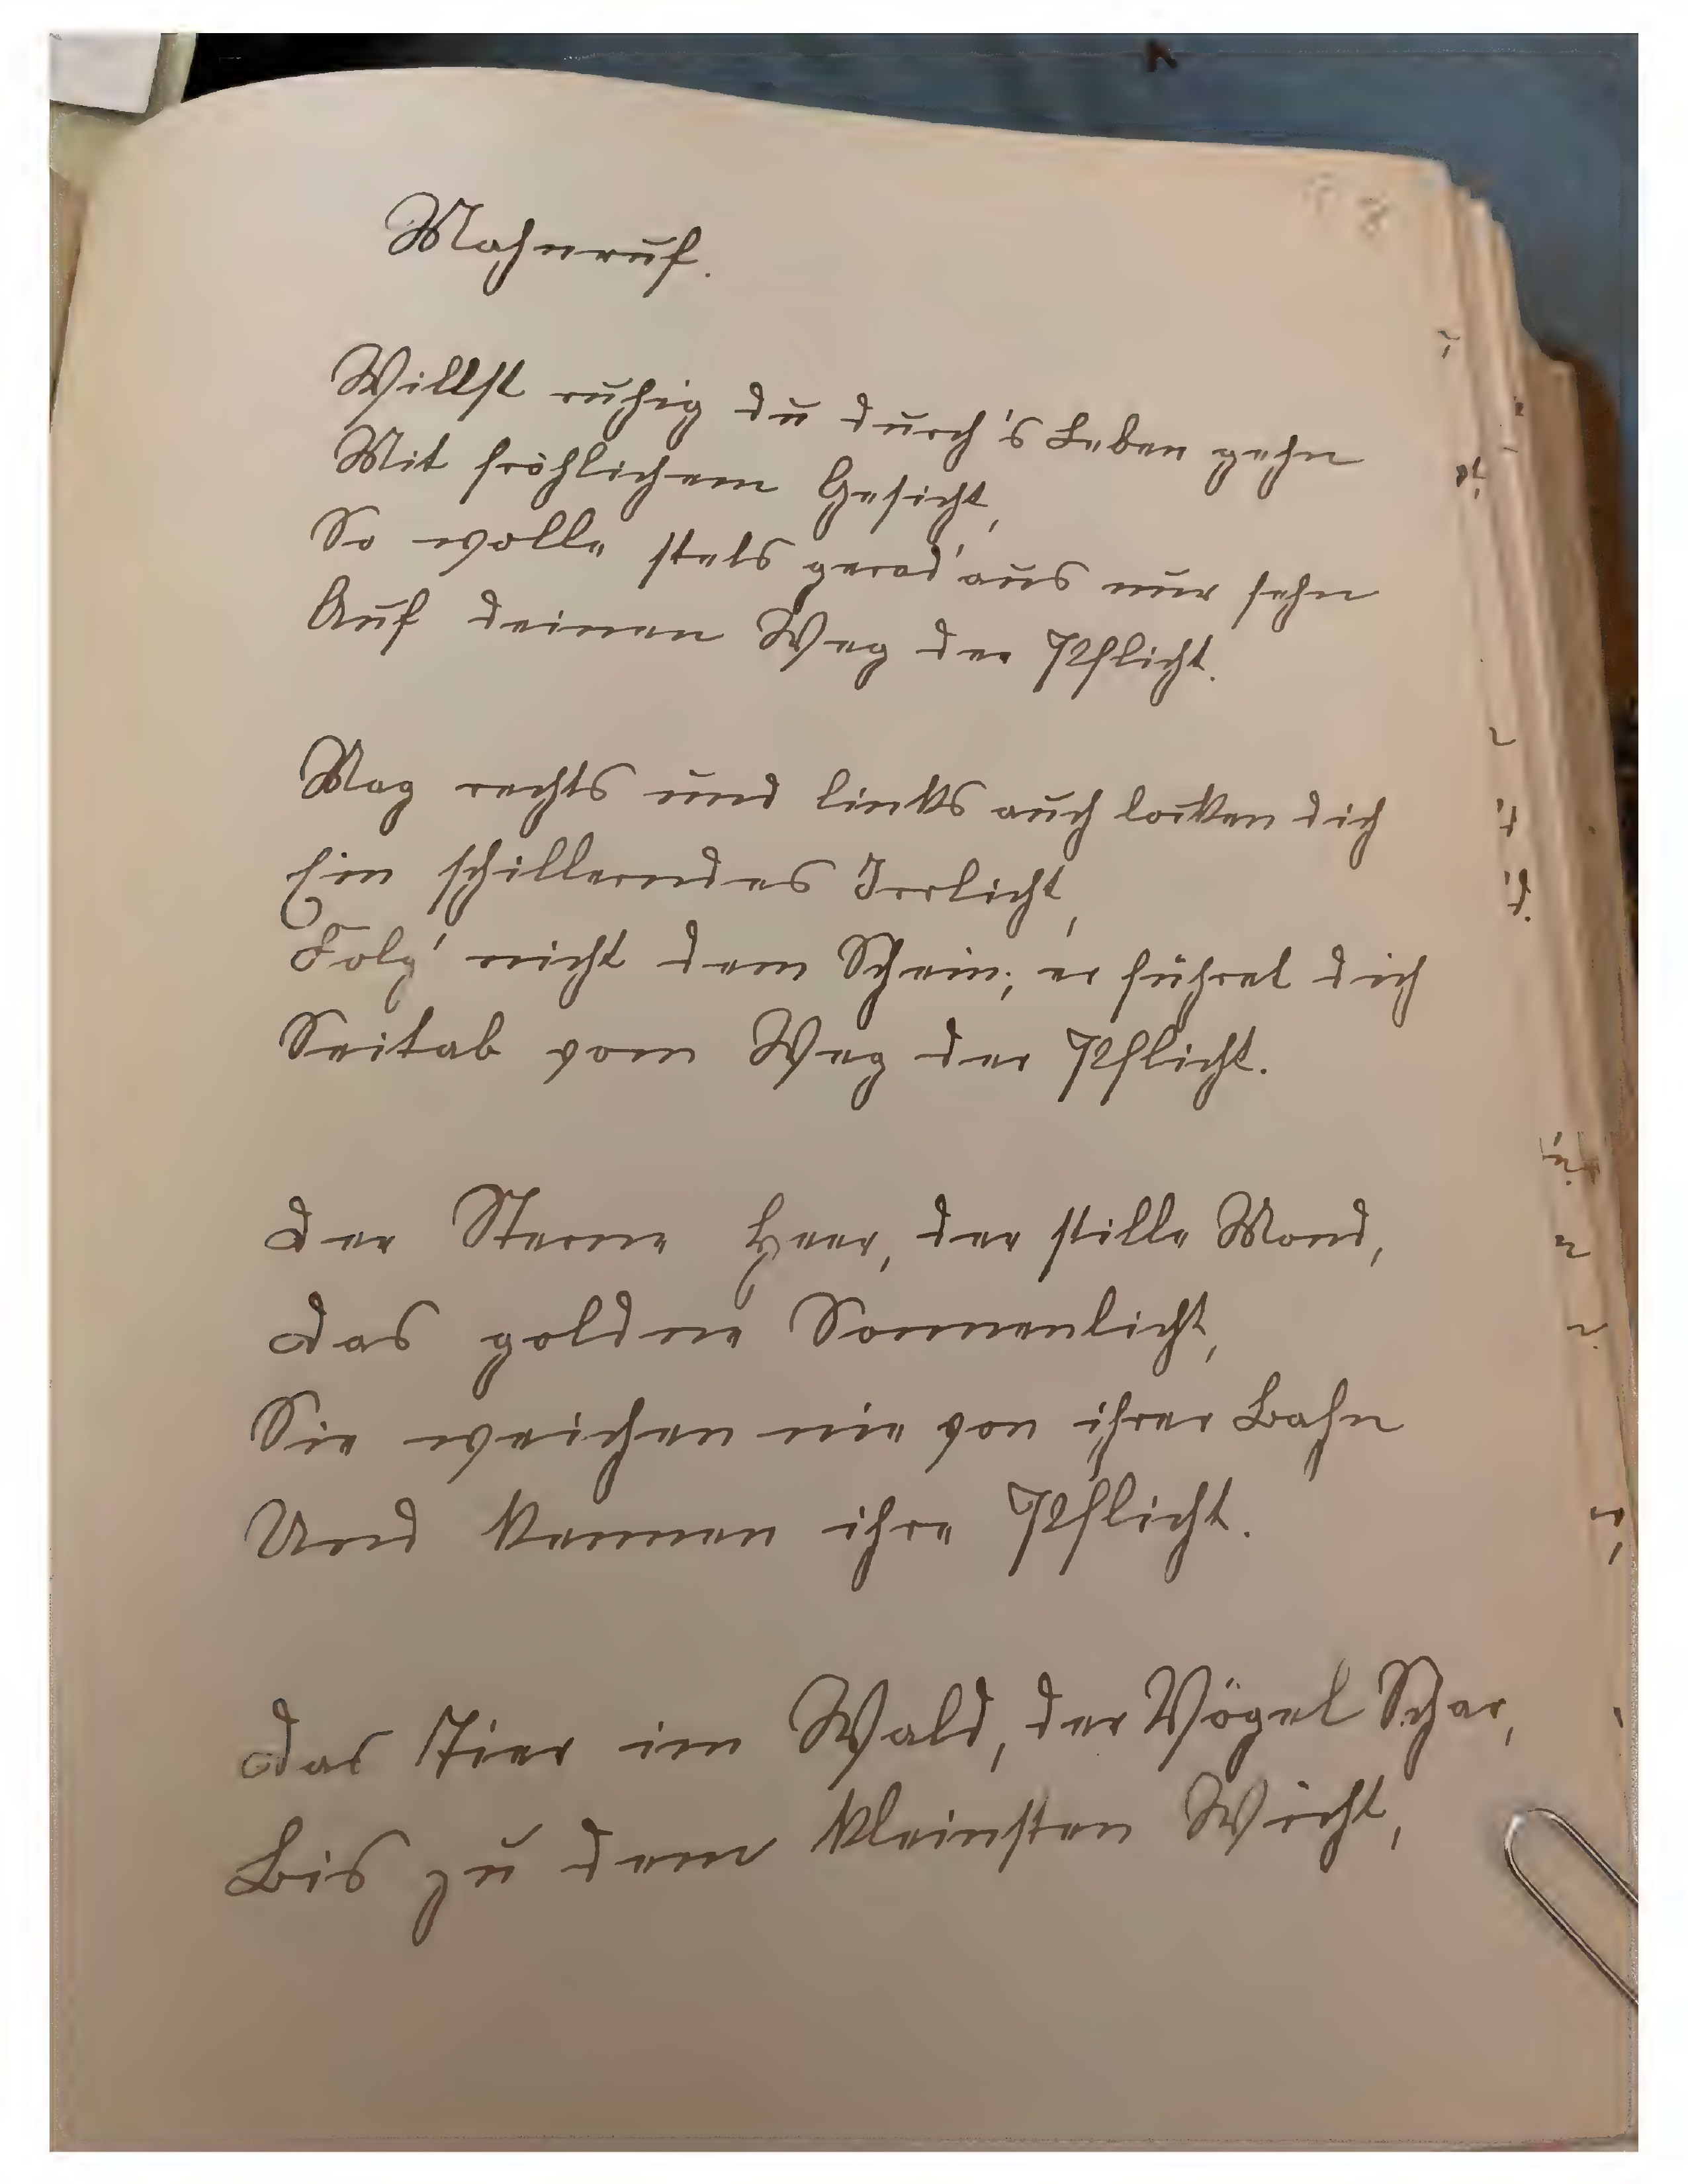 Mahnruf.
Willst ruhig du durch's Leben gehn
Mit fröhlichem Gesicht,
So wolle stets gerad'aus nur sehn
Auf deinen Weg der Pflicht.
Mag rechts und links auch locken dich
Ein schillerndes Irrlicht,
Folg' nicht dem Schein; er führet dich
Seitab vom Weg der Pflicht.
Der Sterne Heer, der stille Mond,
Das goldne Sonnenlicht,
Sie weichen nie von ihrer Bahn
Und kennen ihre Pflicht.
Das Tier im Wald, der Vögel Schar,
Bis zu dem kleinsten Wicht,